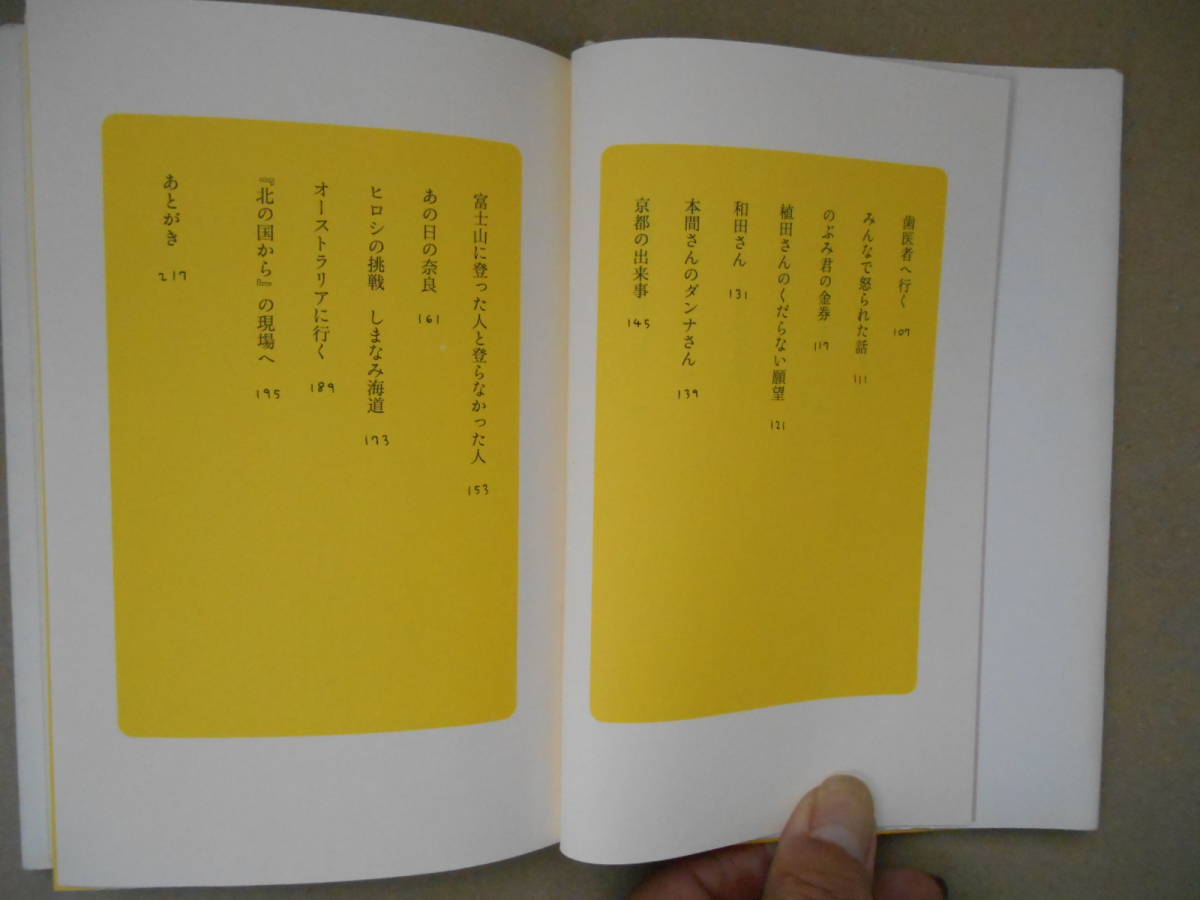 歯医者へ行く 107
みんなで怒られた話 111
のぶみ君の金券 117
植田さんのくだらない願望 121
和田さん 131
本間さんのダンナさん 139
京都の出来事 145
富士山に登った人と登らなかった人 153
あの日の奈良 161
ヒロシの挑戦 しまなみ海道 173
オーストラリアに行く 189
『北の国から』の現場へ 195
あとがき 217